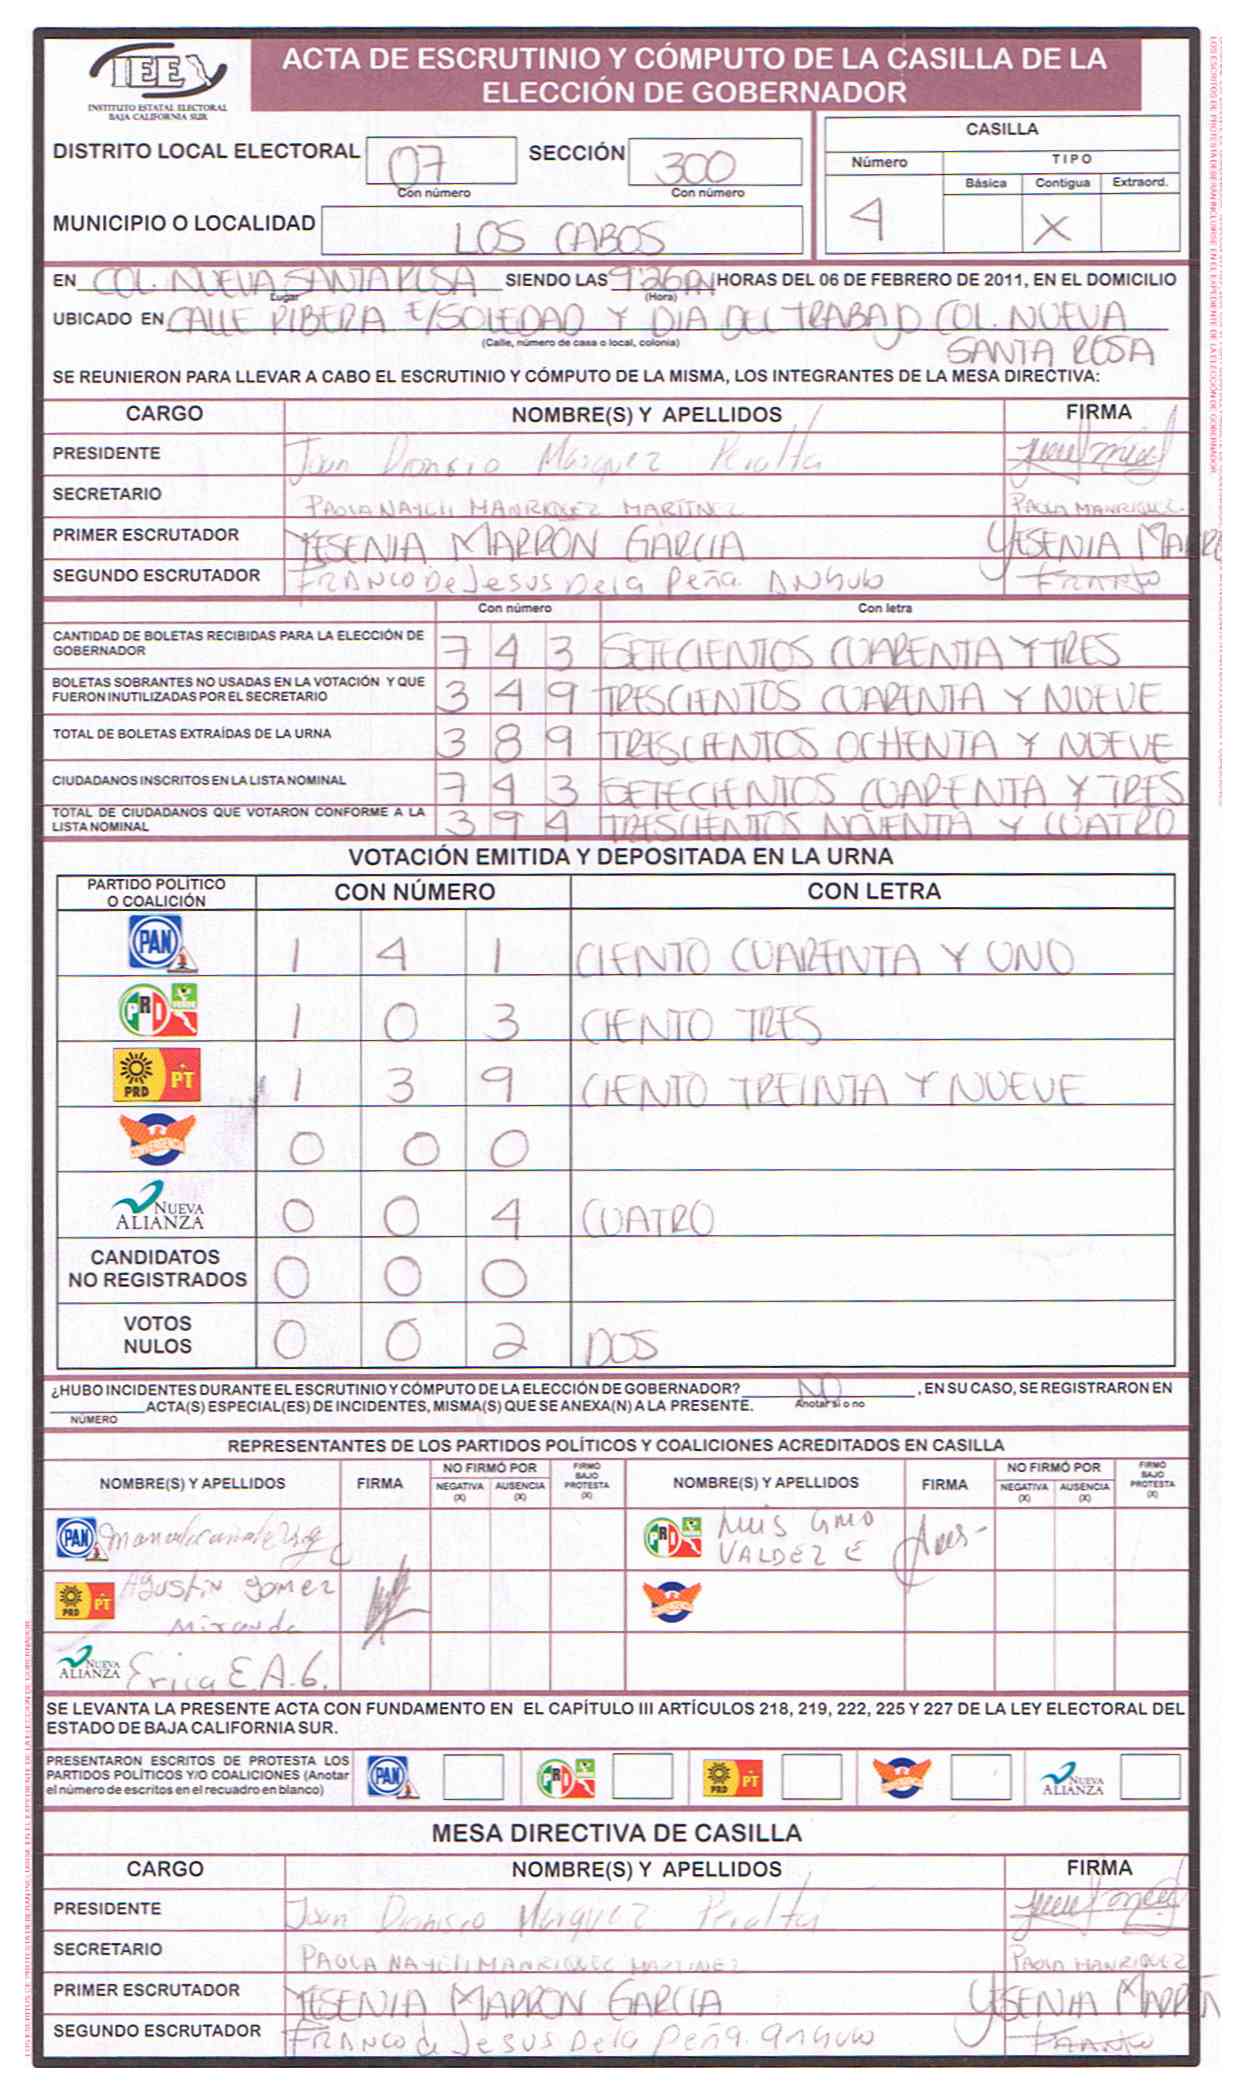 IEEBCS
INSTITUTO ESTATAL ELECTORAL
BAJA CALIFORNIA SUR
ACTA DE ESCRUTINIO Y CÓMPUTO DE LA CASILLA DE LA
ELECCIÓN DE GOBERNADOR
DISTRITO LOCAL ELECTORAL 07 SECCIÓN 300
Con número Con número
MUNICIPIO O LOCALIDAD LOS CABOS
CASILLA
Número TIPO
Básica Contigua Extraord.
4 X
EN COL. NUEVA SANTA ROSA SIENDO LAS 9:26 PM HORAS DEL 06 DE FEBRERO DE 2011, EN EL DOMICILIO
Lugar (Hora)
UBICADO EN CALLE RIBERA E/SOLEDAD Y DIA DEL TRABAJO COL. NUEVA
(Calle, número de casa o local, colonia) SANTA ROSA
SE REUNIERON PARA LLEVAR A CABO EL ESCRUTINIO Y CÓMPUTO DE LA MISMA, LOS INTEGRANTES DE LA MESA DIRECTIVA:
CARGO NOMBRE(S) Y APELLIDOS FIRMA
PRESIDENTE Juan Dionisio Marquez Peralta
SECRETARIO PAOLA NAYELI MANRIQUEZ MARTINEZ PAOLA MANRIQUEZ
PRIMER ESCRUTADOR YESENIA MARRON GARCIA YESENIA MARR
SEGUNDO ESCRUTADOR FRANCO De Jesus De la Peña ANGULO FRANCO
Con número Con letra
CANTIDAD DE BOLETAS RECIBIDAS PARA LA ELECCIÓN DE
GOBERNADOR 7 4 3 SETECIENTOS CUARENTA Y TRES
BOLETAS SOBRANTES NO USADAS EN LA VOTACIÓN Y QUE
FUERON INUTILIZADAS POR EL SECRETARIO 3 4 9 TRESCIENTOS CUARENTA Y NUEVE
TOTAL DE BOLETAS EXTRAÍDAS DE LA URNA 3 8 9 TRESCIENTOS OCHENTA Y NUEVE
CIUDADANOS INSCRITOS EN LA LISTA NOMINAL 7 4 3 SETECIENTOS CUARENTA Y TRES
TOTAL DE CIUDADANOS QUE VOTARON CONFORME A LA
LISTA NOMINAL 3 9 4 TRESCIENTOS NOVENTA Y CUATRO
VOTACIÓN EMITIDA Y DEPOSITADA EN LA URNA
PARTIDO POLÍTICO
O COALICIÓN CON NÚMERO CON LETRA
PAN 1 4 1 CIENTO CUARENTA Y UNO
PRD VERDE 1 0 3 CIENTO TRES
PRD PT 1 3 9 CIENTO TREINTA Y NUEVE
CONVERGENCIA 0 0 0
NUEVA ALIANZA 0 0 4 CUATRO
CANDIDATOS
NO REGISTRADOS 0 0 0
VOTOS
NULOS 0 0 2 DOS
¿HUBO INCIDENTES DURANTE EL ESCRUTINIO Y CÓMPUTO DE LA ELECCIÓN DE GOBERNADOR? NO , EN SU CASO, SE REGISTRARON EN
Anotar si o no
ACTA(S) ESPECIAL(ES) DE INCIDENTES, MISMA(S) QUE SE ANEXA(N) A LA PRESENTE.
NÚMERO
REPRESENTANTES DE LOS PARTIDOS POLÍTICOS Y COALICIONES ACREDITADOS EN CASILLA
NOMBRE(S) Y APELLIDOS FIRMA NO FIRMÓ POR NEGATIVA (X) AUSENCIA (X) FIRMÓ BAJO PROTESTA (X) NOMBRE(S) Y APELLIDOS FIRMA NO FIRMÓ POR NEGATIVA (X) AUSENCIA (X) FIRMÓ BAJO PROTESTA (X)
PAN PRD LUIS GMO
VALDEZ E
PRD PT Agustin gomez CONVERGENCIA
Miranda
NUEVA ALIANZA Erica E.A.G.
SE LEVANTA LA PRESENTE ACTA CON FUNDAMENTO EN EL CAPÍTULO III ARTÍCULOS 218, 219, 222, 225 Y 227 DE LA LEY ELECTORAL DEL
ESTADO DE BAJA CALIFORNIA SUR.
PRESENTARON ESCRITOS DE PROTESTA LOS
PARTIDOS POLÍTICOS Y/O COALICIONES (Anotar
el número de escritos en el recuadro en blanco)
PAN PRD PRD PT CONVERGENCIA NUEVA ALIANZA
MESA DIRECTIVA DE CASILLA
CARGO NOMBRE(S) Y APELLIDOS FIRMA
PRESIDENTE Juan Dionisio Marquez Peralta
SECRETARIO PAOLA NAYELI MANRIQUEZ MARTINEZ PAOLA MANRIQUEZ
PRIMER ESCRUTADOR YESENIA MARRON GARCIA YESENIA MARRON
SEGUNDO ESCRUTADOR FRANCO de Jesus De la Peña angulo FRANCO
LOS ESCRITOS DE PROTESTA DEBERAN INCLUIRSE EN EL EXPEDIENTE DE LA ELECCION DE GOBERNADOR
LOS ESCRITOS DE PROTESTA DEBERAN INCLUIRSE EN EL EXPEDIENTE DE LA ELECCION DE GOBERNADOR